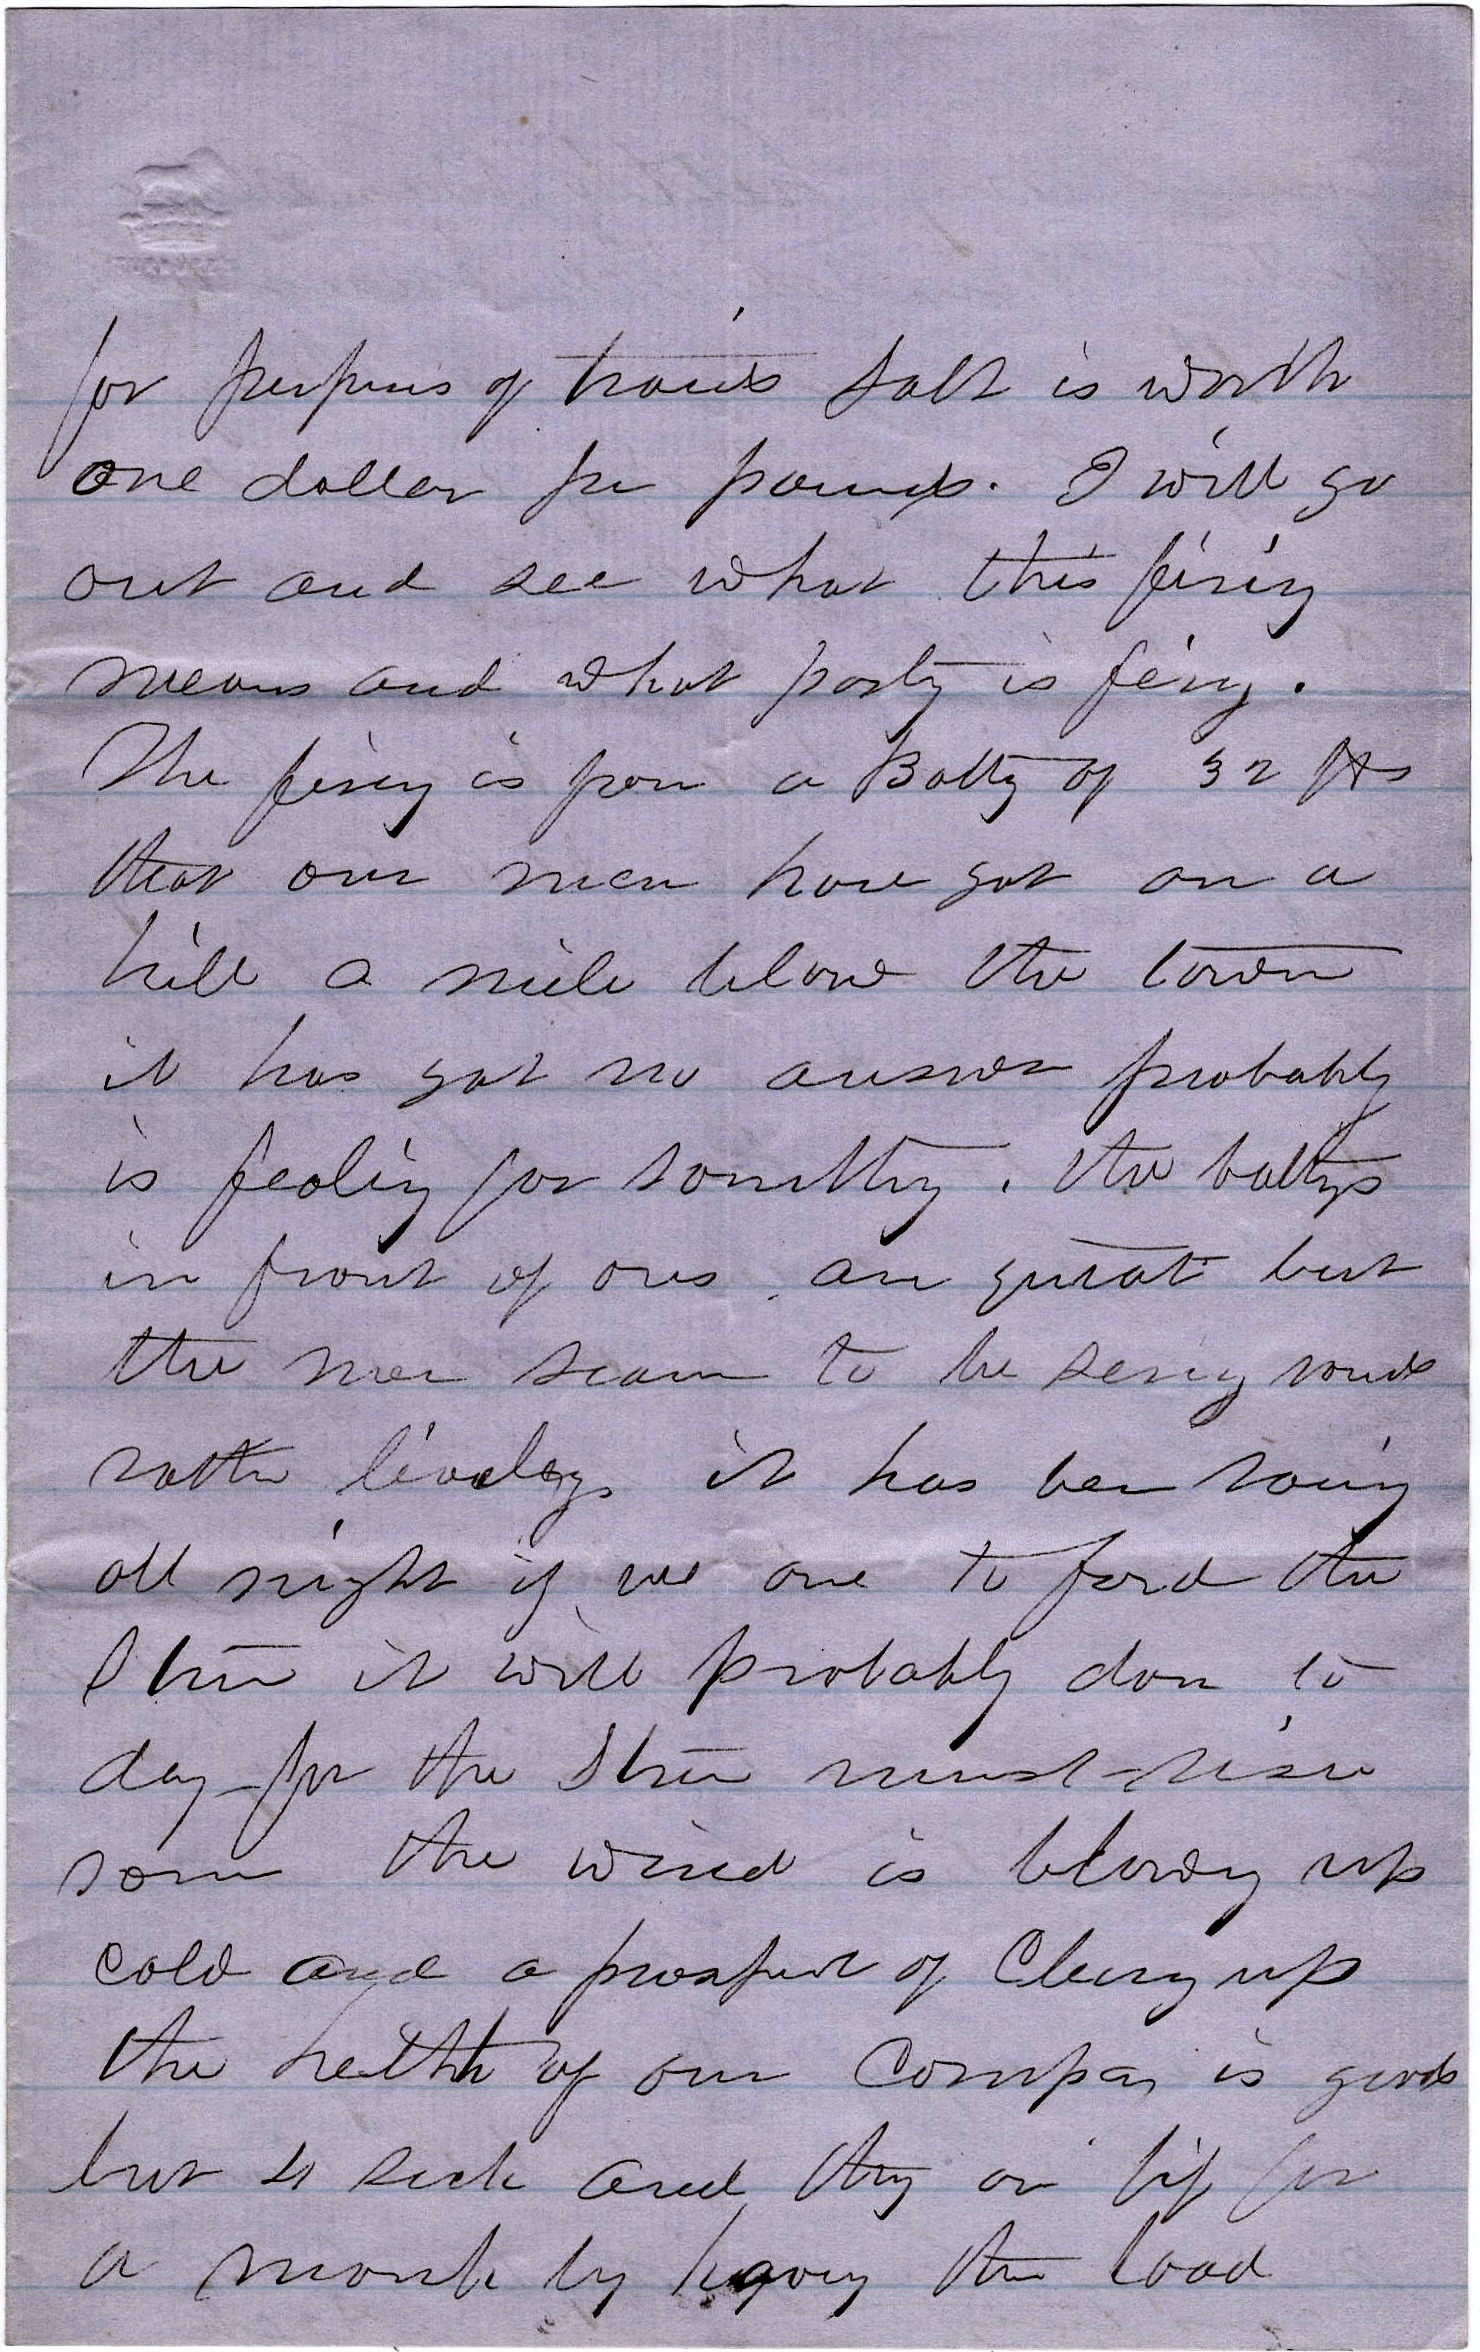 for purpus of trane Salt is worth
one dollar per pound. I will go
out and see what this firing
means and what party is firing.
The firing is from a Batty of 32 pds
that our men have got on a
hill a mile below the town
it has got no answer probably
is feeling for something. the battys
in front of ours are quiat but
the men seam to be sering rouds
rather livaly it has ben raing
all night if we are to ford the
Strem it will probably don to
day for the Strem must rise
some the wind is blowing up
cold and a prospect of Clearing up
the helth of our Compay is good
but 4 sick and they are fit for
a month by having the load